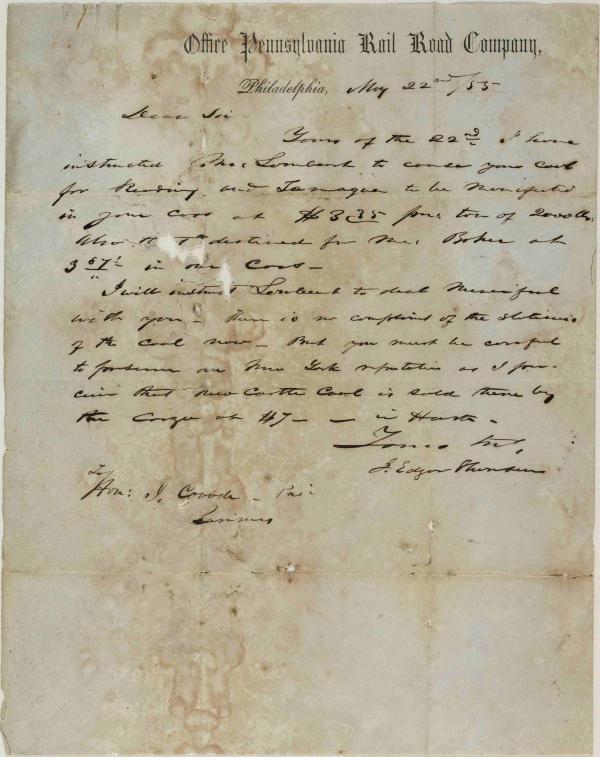 Office Pennsylvania Rail Road Company,
Philadelphia, May 22nd/55
Dear Sir
Yours of the 22nd I have
instructed Mr. Lombaert to cause your coal
for Reading and Tamaqua to be
in your Cars at $3.35 per ton of 2000 lbs.
Also the destined for Mr. Baker at
3 in our Cars -
I will instruct Lombaert to deal Merciful
with you - there is no complaint of the
of the Coal now - But you must be careful
to preserve our New York reputation as I per-
ceive that New Castle Coal is sold there by
the Cargo at $7 - - in
Yours
J. Edgar Thomson
To
Hon: J. Covode -
Larimer